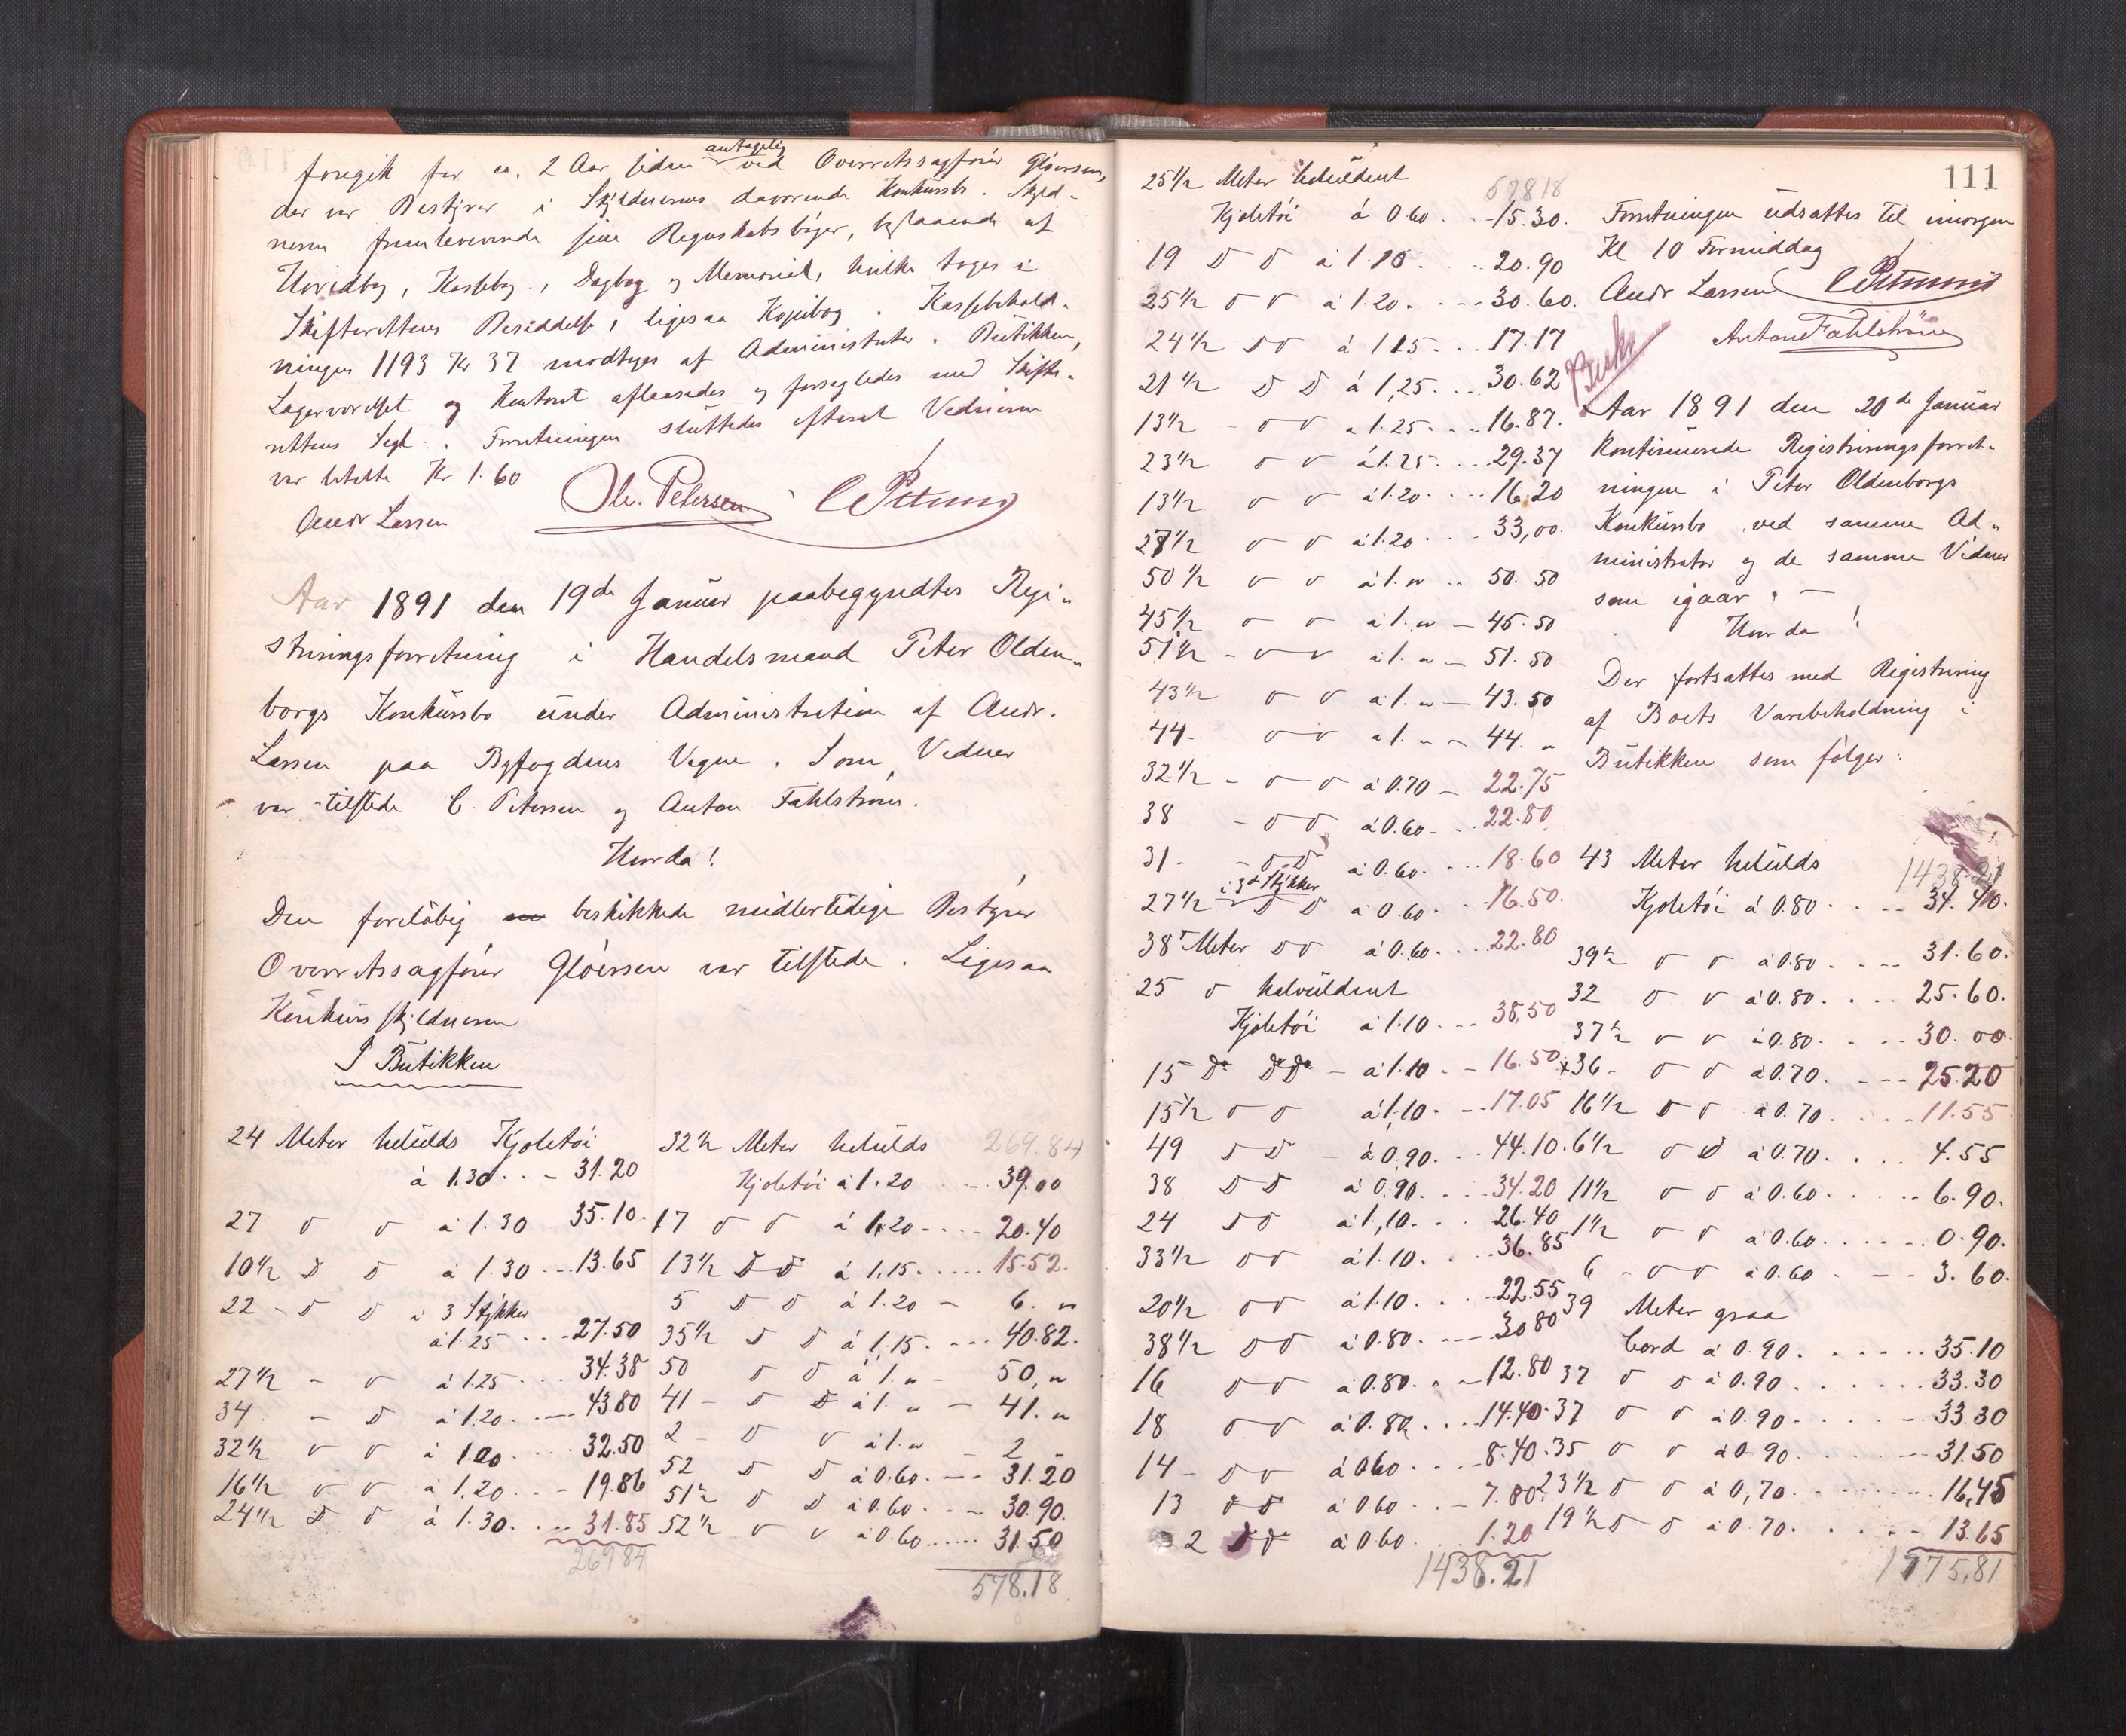 foregik for ca. 2 Aar siden antagelig ved Overretssagfører Gløersen,
der var Bestyrer i Skyldnerens daværende Konkursbo. Skyld-
neren fremleverede sine Regnskabsbøger, bestaaende af
Hovedbog, Kassebog, Dagbog og Memorial, hvilke toges i
Skifterettens Besiddelse, ligesaa Kopibog. Kassebehold-
ningen 1193 Kr 37 modtoges af Administrator. Butikken,
Lagerværelset og Kontoret aflaasedes og forsegledes med Skifte-
rettens Segl. Forretningen sluttedes efterat Vidnerne
var betalte Kr 1.60
Andr Larsen Ole. Petersen C Petersen
Aar 1891 den 19de Januar paabegyndtes Regi-
streringsforretning i Handelsmand Peter Olden-
borgs Konkursbo under Administration af Andr.
Larsen paa Byfogdens Vegne. Som Vidner
var tilstede C. Petersen og Anton Fahlstrøm.
Hvorda!
Den foreløbig beskikkede midlertidige Bestyrer
Overretssagfører Gløersen var tilstede. Ligesaa
Konkursskyldneren
I Butikken
24 Meter helulds Kjoletøi
à 1.30 . . - 31.20
27 D D à 1.30 35.10.
10 1/2 D D à 1.30 - - 13.65
22 - D D i 3 Stykker
à 1.25 . . . 27.50
27 1/2 - D à 1.25 . . . 34.38
34 - D à 1.20 . . - 43.80
32 1/2 D D à 1.00 . . . 32.50
16 1/2 D D à 1.20 . . - 19.86
24 1/2 D D à 1.30. . . 31.85
269 84
32 1/2 Meter helulds 269.84
Kjoletøi à 1.20 . . . 39.00
17 D D à 1.20 - . . . 20.40
13 1/2 D D à 1.15. . . . . 15.52.
5 D D à 1.20 - 6. "
35 1/2 D D à 1.15. - - - 40.82.
50 D D à 1. " - 50, "
41 - D D à 1. " - 41. "
2 - D D à 1. " - 2 -
52 D D à 0.60. - - 31.20
51 1/2 D D à 0.60. . - 30.90.
52 1/2 D D à 0.60 . . . . . 31.50
578.18
111
25 1/2 Meter heluldent 57818
Kjoletøi à 0 60. . - 15.30.
19 D D à 1.10. . . 20.90
25 1/2 D D à 1.20. . - - 30.60.
24 1/2 D D à 1 15. . . 17.17
21 1/2 D D à 1,25. . . 30.62
13 1/2 - D D à 1.25. . . 16.87.
23 1/2 D D à 1.25. . . . 29.37
13 1/2 D D à 1.20. . . . 16.20
27 1/2 D D à 1.20 . . . 33,00.
50 1/2 D D à 1. " . . 50. 50
45 1/2 D D à 1. " - 45.50
51 1/2 - D D à 1. " - 51. 50
43 1/2 D D à 1. " - 43.50
44 - D D à 1. " - 44. "
32 1/2 - D D à 0.70 - 22.75
38 - D D à 0.60 - . . 22.80
31 - - D D à 0.60. - . . 18.60
27 1/2 i 3de Stykker D D à 0 60. . . 16.50.
38 Meter D D à 0.60. . . . 22.80
25 D halvuldent
Kjoletøi à 1.10. - - 38,50
15 Do DoDo - à 1.10. - 16.50
15 1/2 D D à 1,10. - - 17.05
49 D D - à 0,90. . . 44.10.
38 D D à 0,90. . . . 34.20
24 D D à 1,10. . . 26.40
33 1/2 D D à 1.10. . . . 36.85
20 1/2 D D à 1.10. . . . 22.55
38 1/2 D D à 0.80. - - - 30 80
16 D D à 0.80. . - 12.80
18 D D à 0.80. . . . 14.40.
14 - D D à 0.60 . . . - 8.40.
13 D D à 0.60 . . - 7.80.
2 D D à 0.60. . . 1.20
1438.21
Forretningen udsattes til imorgen
Kl 10 Formiddag
Andr Larsen C Petersen
Anton Fahlstrøm
Beskr
Aar 1891 den 20de Januar
kontinuerede Registreringsforret-
ningen i Peter Oldenborgs
Konkursbo ved samme Ad-
ministrator og de samme Vidner
som igaar. -
Hvorda!
Der fortsattes med Registrering
af Boets Varebeholdning i
Butikken som følger:
43 Meter helulds 1438.21
Kjoletøi à 0.80. . . - - 34.40.
39 1/2 D D à 0.80 . . - - 31.60.
32 D D à 0.80. . . . 25.60.
37 1/2 D D à 0.80. . . . 30. 00.
x36 - D D à 0.70. - - - 25.20
16 1/2 D D à 0.70. . . . . 11.55
6 1/2 D D à 0.70. . . . 4.55
11 1/2 D D à 0.60. . . . . . 6.90.
1 1/2 D D à 0.60. . . . . . 0.90.
6 - D D à 0.60 . - - 3.60.
39 Meter graa
Cord à 0.90. . . . . . 35.10
37 D D à 0.90 . . . . . . 33.30
37 D D à 0.90. . . . . - 33.30
35 D D à 0.90. . . . . - 31.50
23 1/2 D D à 0,70. . . . . . . 16,45
19 1/2 D D à 0.70. . . . . - 13.65
1775,81